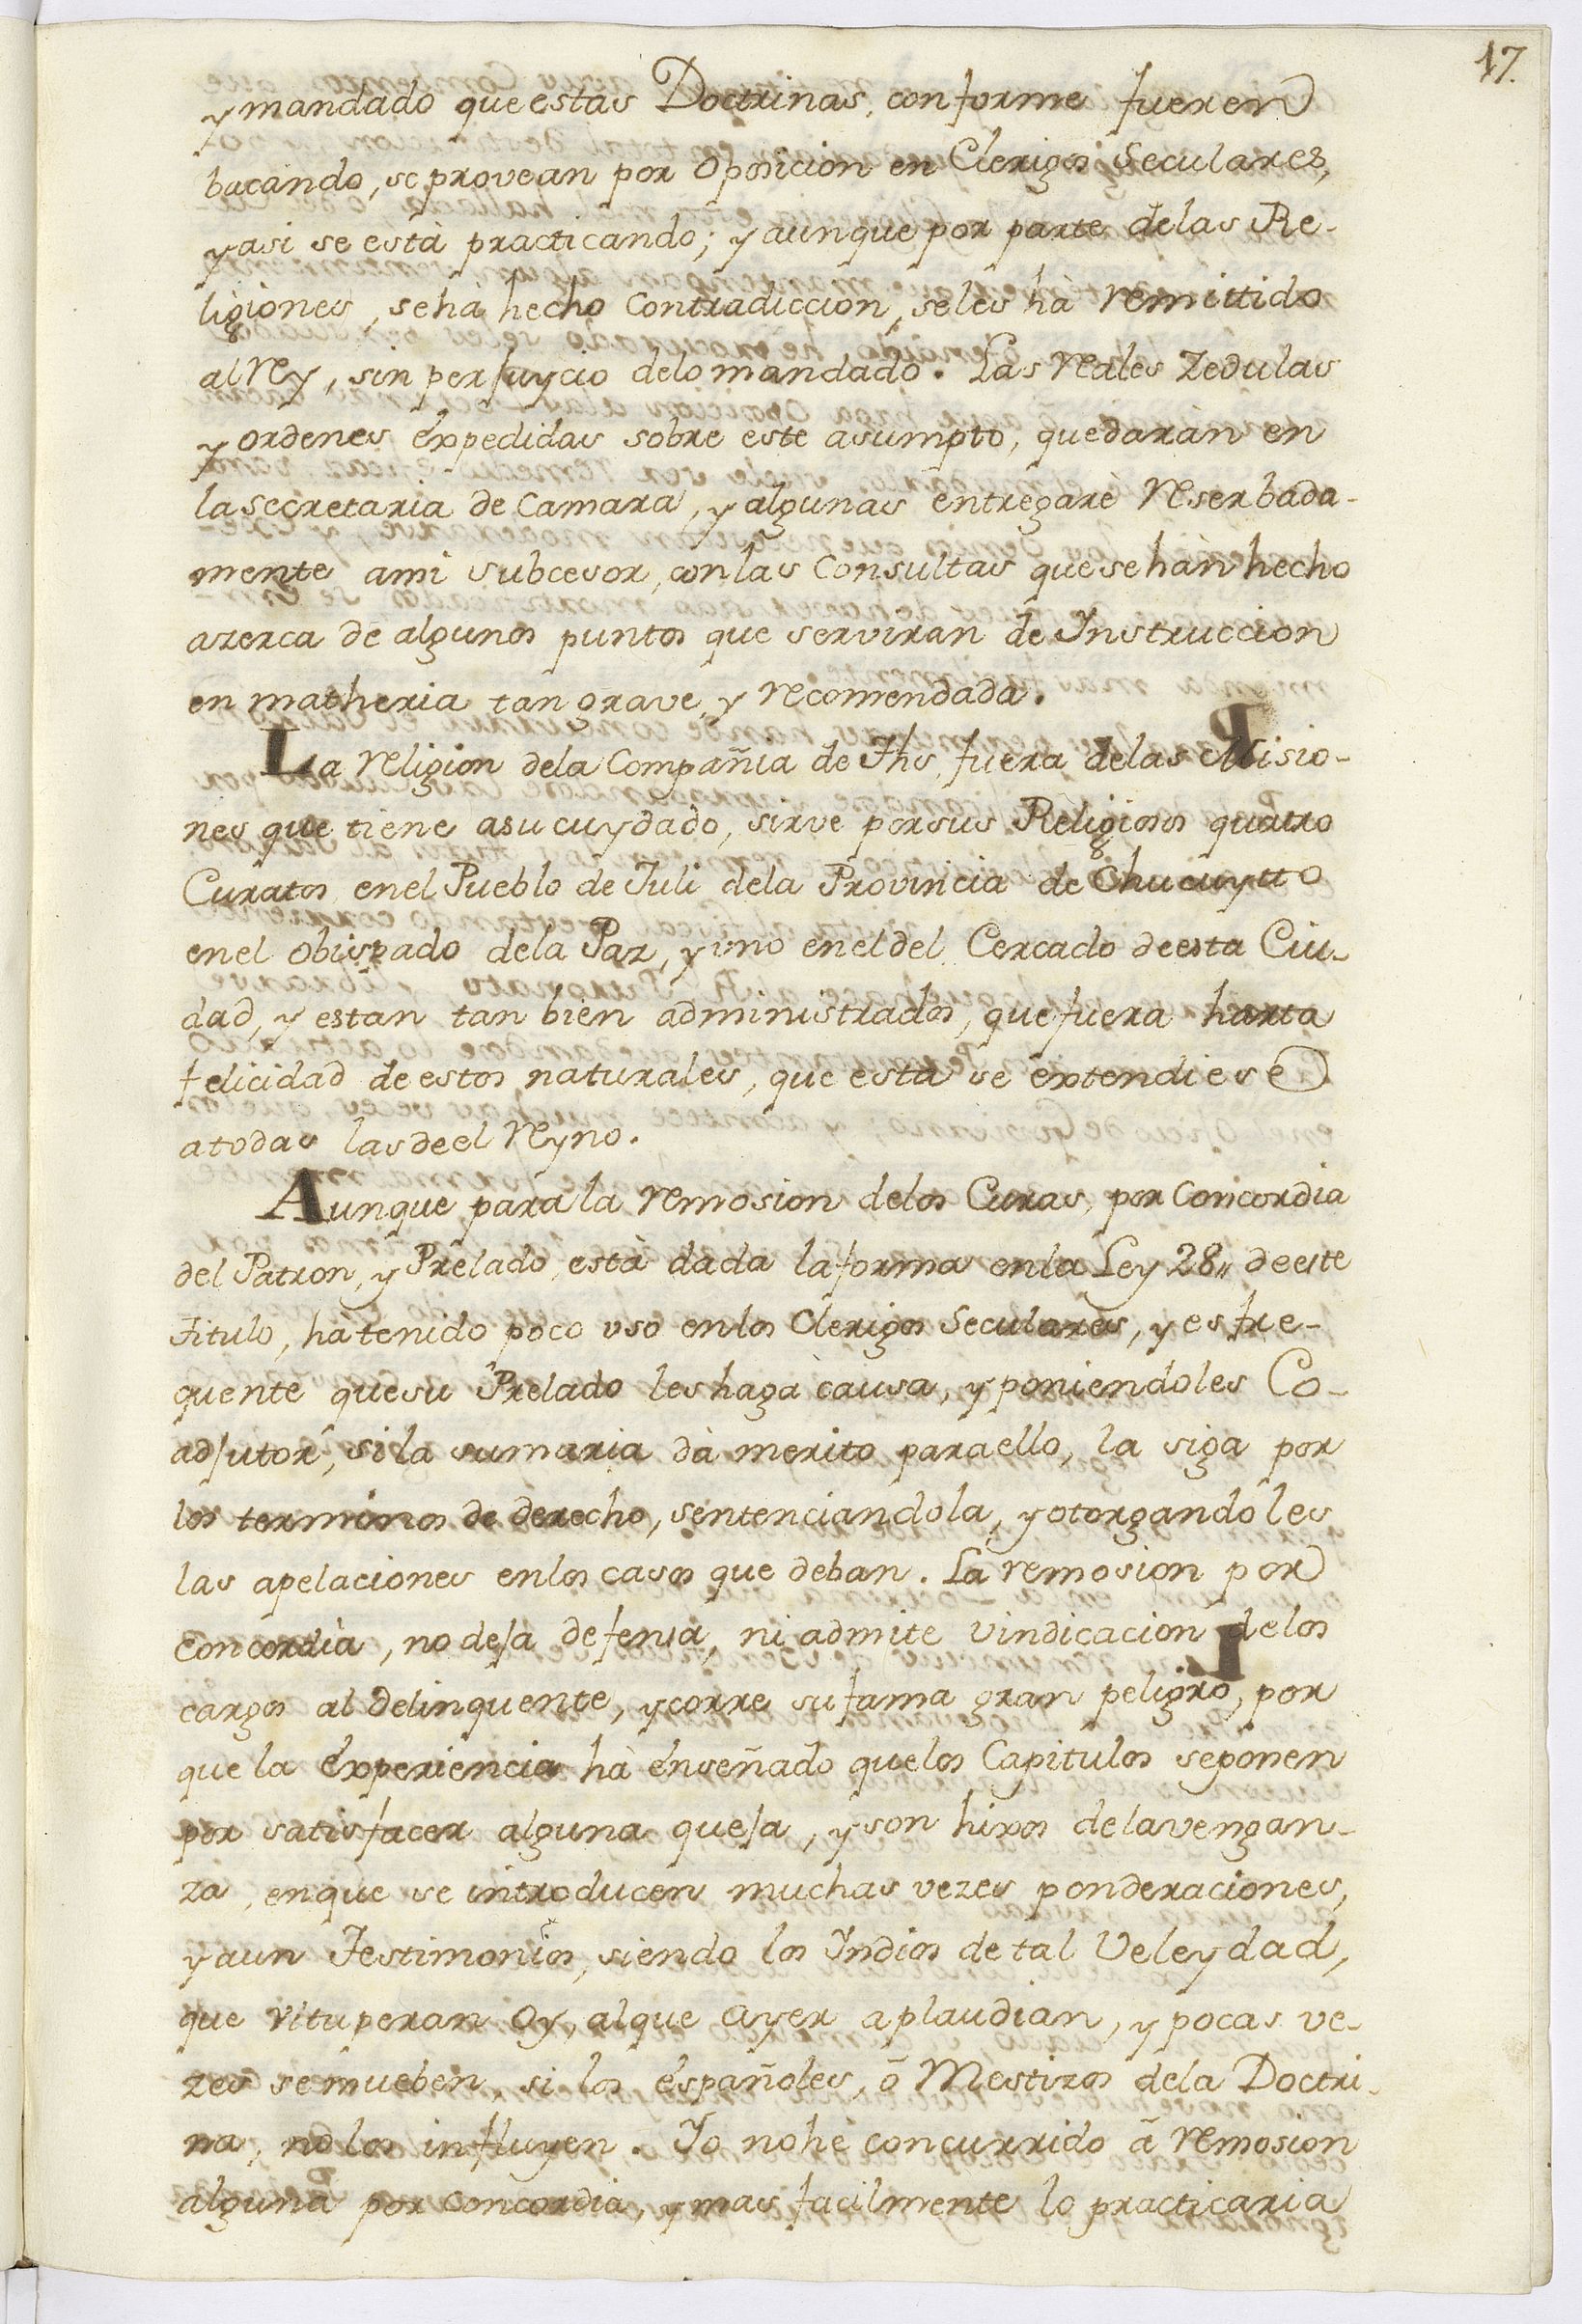 17.
y mandado que estas Doctrinas, conforme fueren
bacando, se provean por oposicion en Clerigos Seculares,
y asi se està practicando; y aunque por parte de las Re-
ligiones, se hà hecho Contradiccion, se les hà remitido
al Rey, sin perjuycio de lo mandado. Las reales Zedulas
y ordenes expedidas sobre este asumpto, quedaràn en
la secretaria de Camara, y algunas entregarè reserbada-
mente a mi subcesor, con las Consultas que se hàn hecho
azerca de algunos puntos que serviran de Ynstruccion
en matheria tan grave, y recomendada.
La religion de la Compañia de Jhs, fuera de las Misio-
nes que tiene a su cuydado, sirve por sus Religiosos quatro
Curatos en el Pueblo de Juli de la Provincia de Chucuytto
en el obispado de la Paz, y uno en el del Cercado de esta Ciu-
dad, y estan tan bien administrados, que fuera harta
felicidad de estos naturales, que esta se extendiese
a todas las de el reyno.
Aunque para la remosion de los Curas, por concordia
del Patron, y Prelado, està dada la forma en la Ley 28,, de este
titulo, hà tenido poco uso en los Clerigos Seculares, y es fre-
quente que su Prelado les haga causa, y poniendoles Co-
adjutor, si la sumaria dà merito para ello, la siga por
los terminos de derecho, sentenciandola, y otorgandoles
las apelaciones en los casos que deban. La remosion por
concordia, no deja defensa, ni admite vindicacion de los
cargos al delinquente, y corre su fama gran peligro, por
que la experiencia hà enseñado que los Capitulos se ponen
por satisfacer alguna queja, y son hixos de la vengan-
za, en que se introducen muchas vezes ponderaciones,
y aun Testimonios, siendo los Yndios de tal Veleydad,
que vituperan oy, al que ayer aplaudian, y pocas ve-
zes se mueben, si los españoles, ò Mestizos de la Doctri-
na, no los influyen. Yo no he concurrido à remosion
alguna por concordia, y mas facilmente lo practicaria